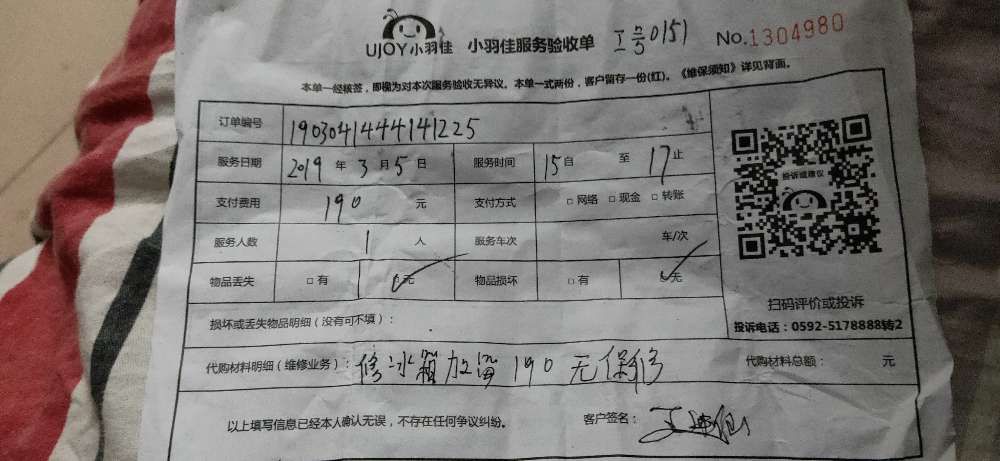 UJOY小羽佳 小羽佳服务验收单 工号0151 No.1304980
本单一经核签，即视为对本次服务验收无异议。本单一式两份，客户留存一份(红)。《维保须知》详见背面。
订单编号 1903041444141225
服务日期 2019 年 3 月 5 日 服务时间 15 自 至 17 止
支付费用 190 元 支付方式 □ 网络 □ 现金 □ 转账
服务人数 1 人 服务车次 车/次
物品丢失 □ 有 □ 无 物品损坏 □ 有 □ 无
投诉或建议
扫码评价或投诉
投诉电话：0592-5178888转2
损坏或丢失物品明细（没有可不填）：
代购材料明细（维修业务）： 修冰箱加 190 无保修 代购材料总额： 元
以上填写信息已经本人确认无误，不存在任何争议纠纷。 客户签名：